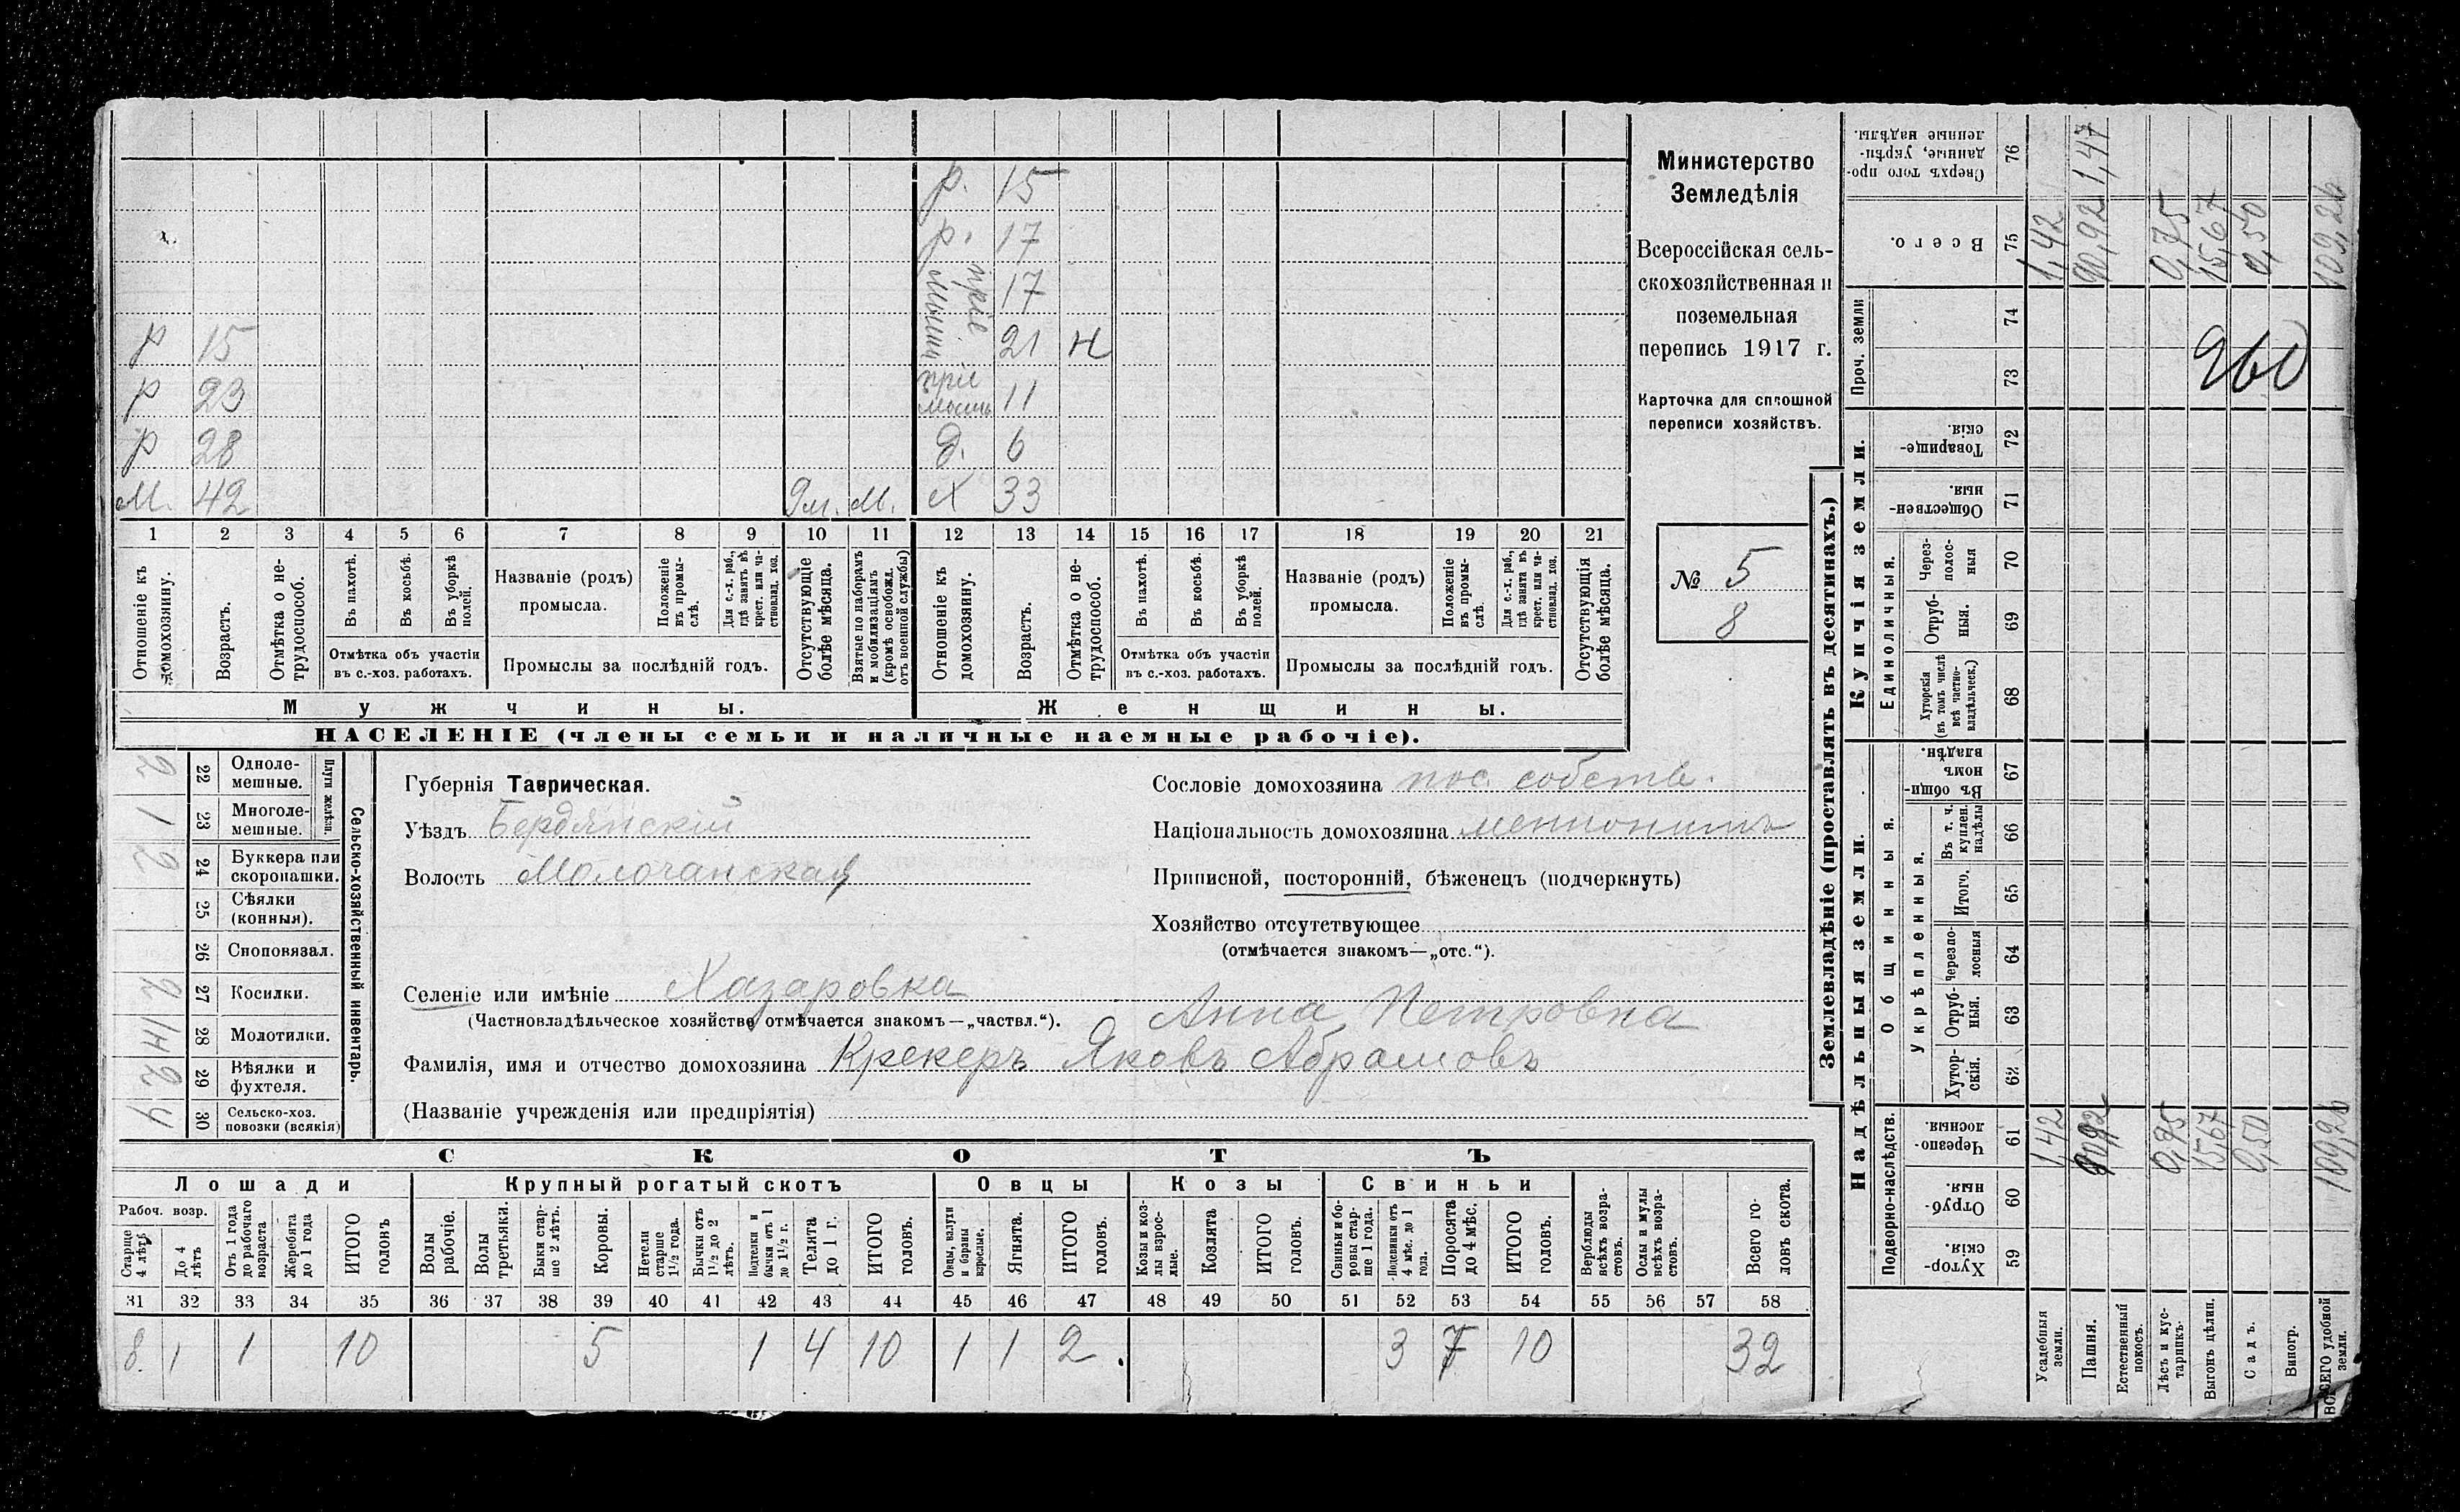 р. 15
р. 17
пріе
мыши 17
р 15 21 н
р 23 пріе
мышь 11
р 28 д. 6
М. 42 9м. М. Х 33
1 2 3 4 5 6 7 8 9 10 11 12 13 14 15 16 17 18 19 20 21
Отношеніе къ домохозяину.
Возрастъ.
Отмѣтка о не-
трудоспособ.
Въ пахотѣ.
Въ косьбѣ.
Въ уборкѣ
полей.
Отмѣтка объ участіи
въ с.-хоз. работахъ.
Названіе (родъ)
промысла.
Положеніе
въ промы-
слѣ.
Для с.-х. раб.,
гдѣ занятъ въ
крест. или ча-
стновлад. хоз.
Промыслы за послѣдній годъ.
Отсутствующіе
болѣе мѣсяца.
Взятые по наборамъ
и мобилизаціямъ
(кромѣ освобожд.
отъ военной службы)
Отношеніе къ
домохозяину.
Возрастъ.
Отмѣтка о не-
трудоспособ.
Въ пахотѣ.
Въ косьбѣ.
Въ уборкѣ
полей.
Отмѣтка объ участіи
въ с.-хоз. работахъ.
Названіе (родъ)
промысла.
Положеніе
въ промы-
слѣ.
Для с.-х. раб.,
гдѣ занята въ
крест. или ча-
стновлад. хоз.
Промыслы за послѣдній годъ.
Отсутствующія
болѣе мѣсяца.
Мужчины.
Женщины.
НАСЕЛЕНІЕ (члены семьи и наличные наемные рабочіе).
Министерство
Земледѣлія
Всероссійская сель-
скохозяйственная и
поземельная
перепись 1917 г.
Карточка для сплошной
переписи хозяйствъ.
№ 5
8
Сельско-хозяйственный инвентарь.
Плуги желѣзн.
2 22 Одноле-
мешные.
1 23 Многоле-
мешные.
2 24 Буккера или
скоропашки.
25 Сѣялки
(конныя).
26 Сноповязал.
2 27 Косилки.
1Н 28 Молотилки.
2 29 Вѣялки и
фухтеля.
4 30 Сельско-хоз.
повозки (всякія)
Губернія Таврическая.
Уѣздъ Бердянскій
Волость Молочанская
Сословіе домохозяина пос. собств.
Національность домохозяина меннонитъ
Приписной, посторонній, бѣженецъ (подчеркнуть)
Хозяйство отсутствующее
(отмѣчается знакомъ—„отс.“).
Селеніе или имѣніе Хазаровка
(Частновладѣльческое хозяйство отмѣчается знакомъ—„частвл.“).
Анна Петровна
Фамилія, имя и отчество домохозяина Крекеръ Яковъ Абрамовъ
(Названіе учрежденія или предпріятія)
СКОТЪ
Лошади
Крупный рогатый скотъ
Овцы
Козы
Свиньи
Рабоч. возр.
Старше
4 лѣтъ
До 4
лѣтъ
Отъ 1 года
до рабочаго
возраста
Жеребята
до 1 года
ИТОГО
головъ
Волы
рабочіе.
Волы
третьяки.
Быки стар-
ше 2 лѣтъ.
Коровы.
Нетели
старше
1½ года.
Бычки отъ
1½ до 2
лѣтъ.
Подтелки и
бычки отъ 1
до 1½ г.
Телята
до 1 г.
ИТОГО
головъ.
Овцы, валухи
и бараны
взрослые.
Ягнята.
ИТОГО
головъ.
Козы и коз-
лы взрос-
лые.
Козлята
ИТОГО
головъ.
Свиньи и бо-
ровы стар-
ше 1 года.
Подсвинки отъ
4 мѣс. до 1
года.
Поросята
до 4 мѣс.
ИТОГО
головъ.
Верблюды
всѣхъ возра-
стовъ.
Ослы и мулы
всѣхъ возра-
стовъ.
Всего го-
ловъ скота.
31 32 33 34 35 36 37 38 39 40 41 42 43 44 45 46 47 48 49 50 51 52 53 54 55 56 57 58
8. 1 1 10 5 1 4 10 1 1 2. 3 7 10 32
Землевладѣніе (проставлять въ десятинахъ.)
Надѣльныя земли.
Купчія земли.
Проч. земли
Подворно-наслѣдств.
Общинныя.
Укрѣпленныя.
Единоличныя.
Хутор-
скія. 59
Отруб-
ныя. 60
Черезпо-
лосныя. 61
Хутор-
скія. 62
Отруб-
ныя. 63
Черезпо-
лосныя 64
Итого. 65
Въ т. ч.
куплен.
надѣлы 66
Въ общи-
номъ
владѣн. 67
Хуторскія
(въ томъ числѣ
всѣ частно-
владѣльческ.) 68
Отруб-
ныя. 69
Через-
полос-
ныя 70
Обществен-
ныя. 71
Товарище-
скія. 72
73
74
Всего. 75
Сверхъ того про-
данные, укрѣп-
ленные надѣлы. 76
Усадебныя
земли. 1,42 1,42
Пашня. 90,92 90,92 1,47
Естественный
покосъ.
Лѣсъ и кус-
тарникъ. 0,75 0,75
Выгонъ цѣлин. 15,67 15,67
Садъ. 0,50 0,50
Виногр.
ВСЕГО удобной
земли. 109,26 109,26
960